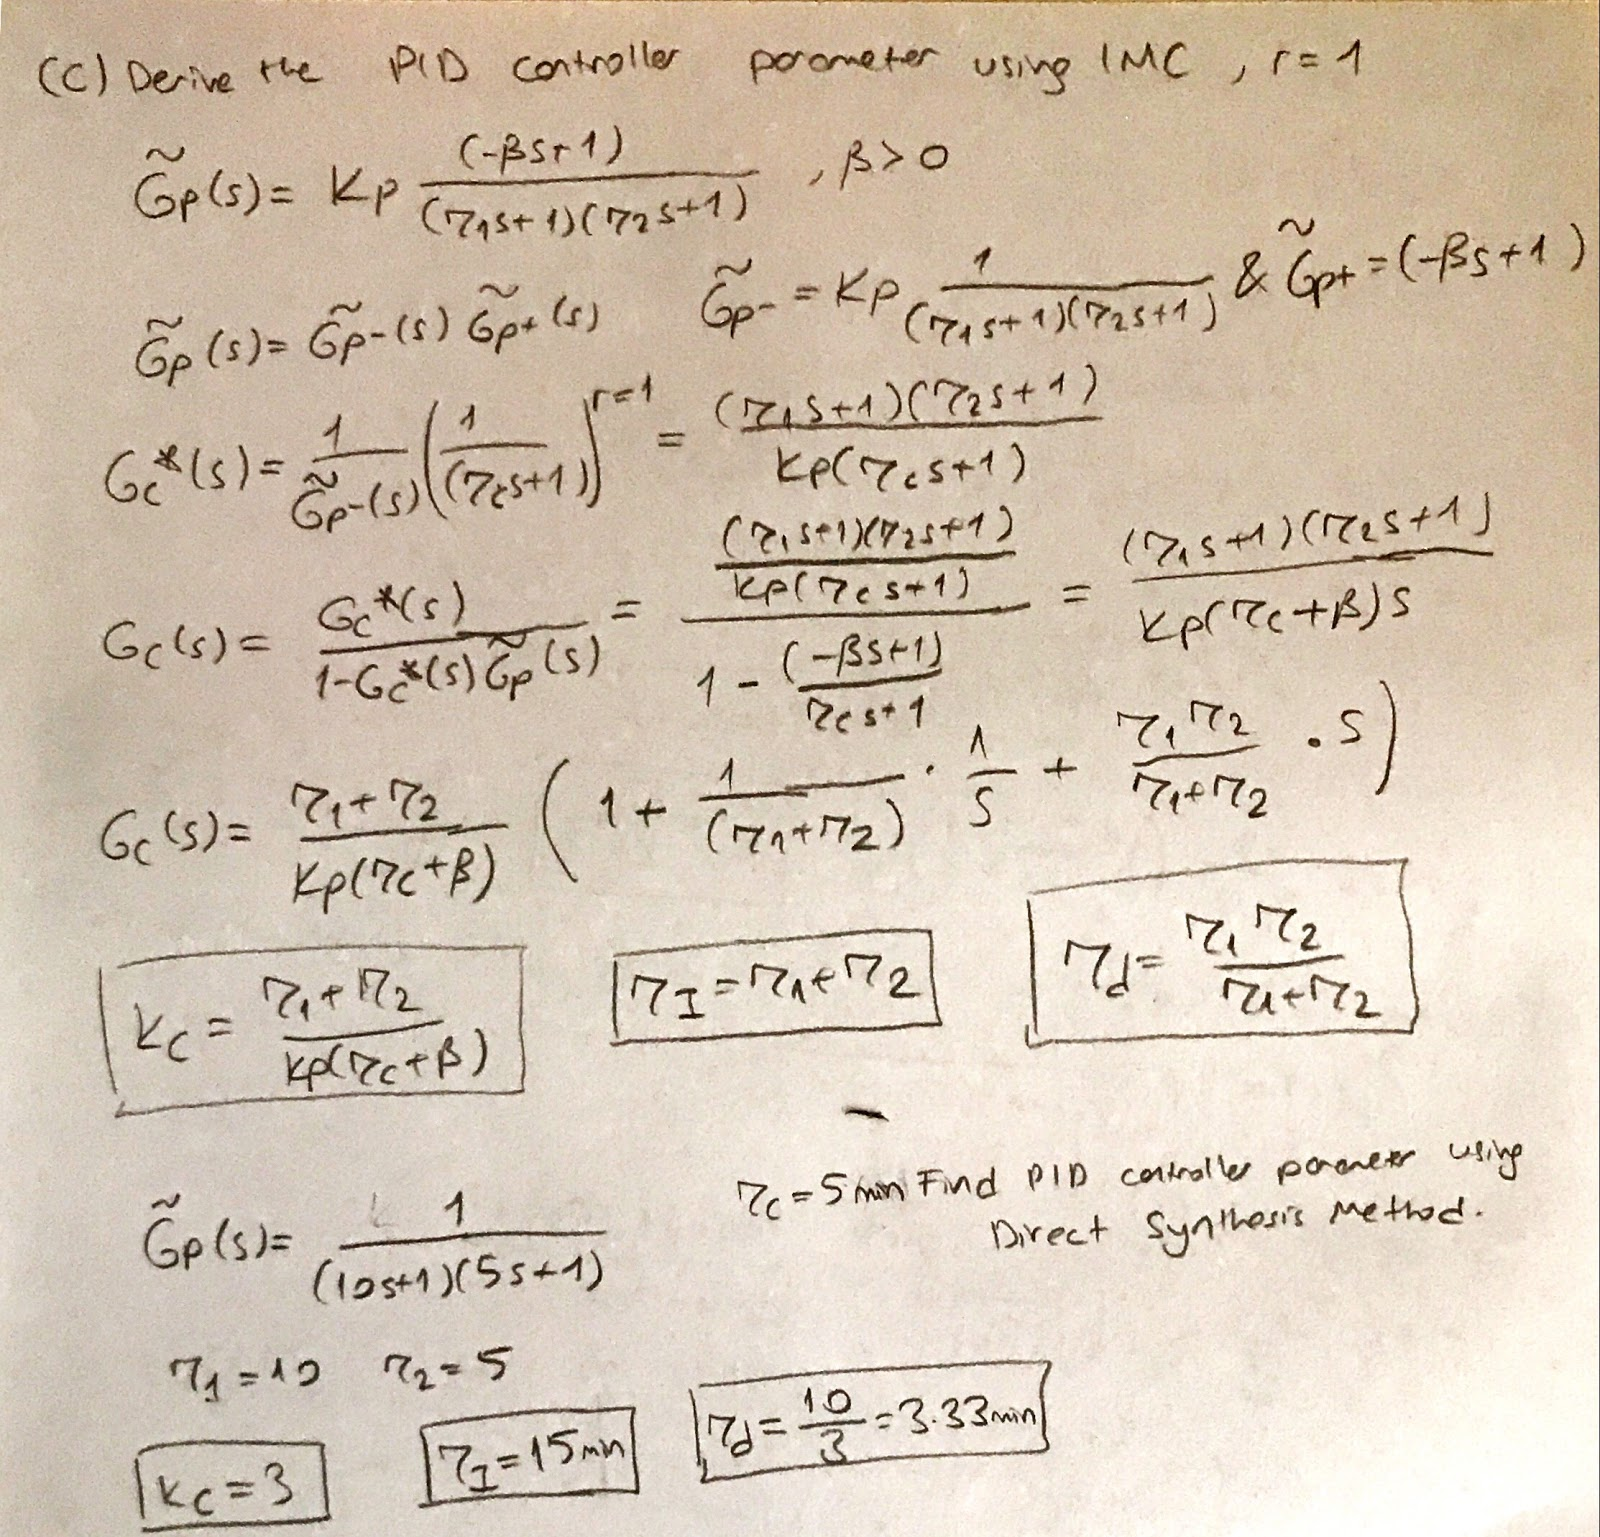 (C) Derive the PID controller parameter using IMC , r = 1
G̃p(s) = Kp (-βs+1) / (τ1s+1)(τ2s+1) , β > 0
G̃p(s) = G̃p-(s) G̃p+(s)   G̃p- = Kp 1 / (τ1s+1)(τ2s+1) & G̃p+ = (-βs+1)
Gc*(s) = 1 / G̃p-(s) (1 / (τcs+1))^r=1 = (τ1s+1)(τ2s+1) / Kp(τcs+1)
Gc(s) = Gc*(s) / 1-Gc*(s)G̃p(s) = (τ1s+1)(τ2s+1) / Kp(τcs+1) / 1 - (-βs+1) / τcs+1 = (τ1s+1)(τ2s+1) / Kp(τc+β)s
Gc(s) = τ1+τ2 / Kp(τc+β) (1 + 1 / (τ1+τ2) · 1 / s + τ1τ2 / τ1+τ2 · s)
Kc = τ1+τ2 / Kp(τc+β)   τI = τ1+τ2   τd = τ1τ2 / τ1+τ2
τc = 5 min Find PID controller parameter using
Direct Synthesis Method.
G̃p(s) = 1 / (10s+1)(5s+1)
τ1 = 10   τ2 = 5
Kc = 3   τI = 15 min   τd = 10 / 3 = 3.33 min